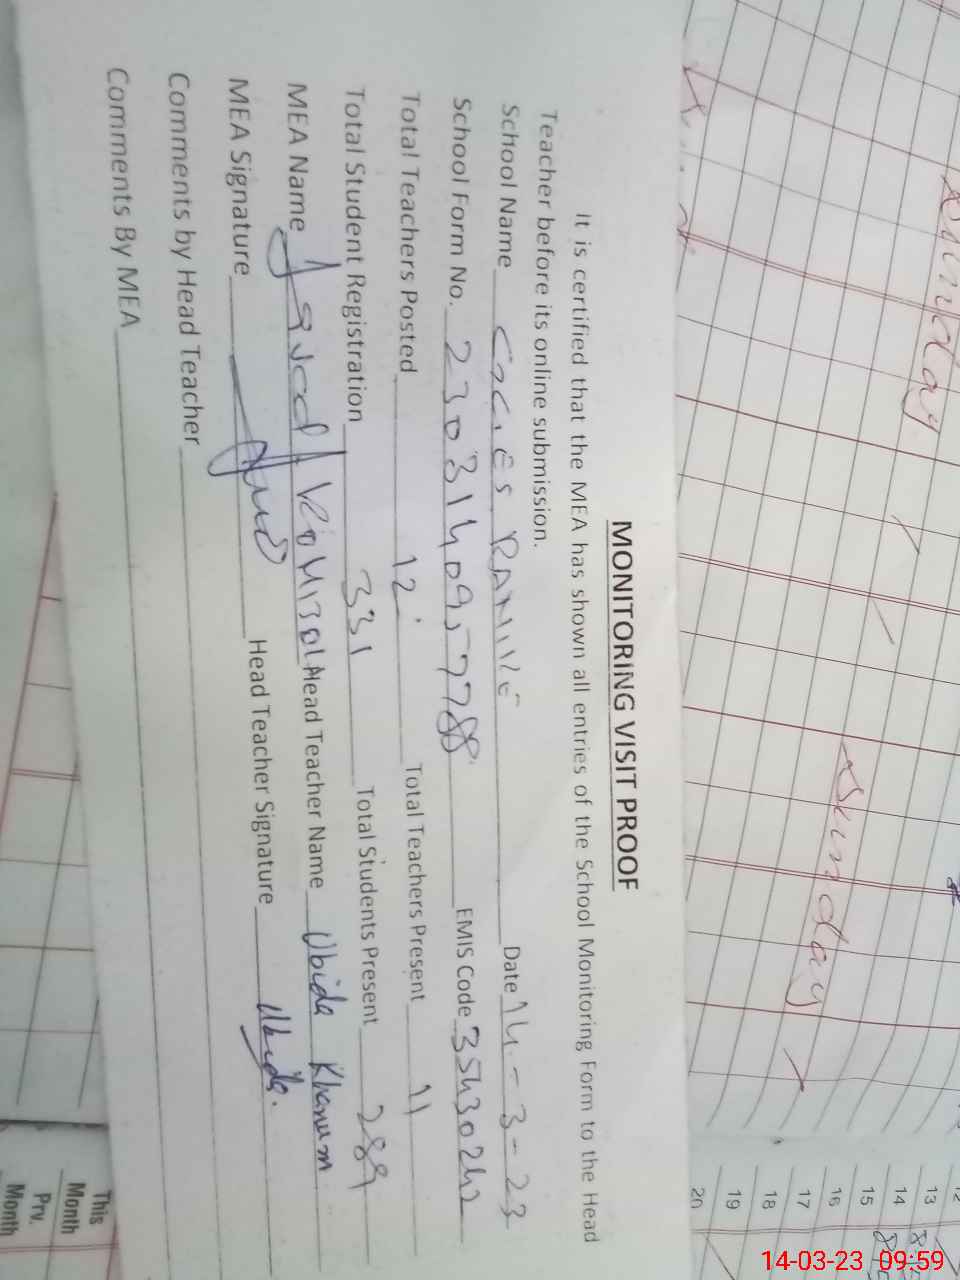 MONITORING VISIT PROOF
It is certified that the MEA has shown all entries of the School Monitoring Form to the Head
Teacher before its online submission.
School Name Date 14-3-23
School Form No. EMIS Code 35430242
Total Teachers Posted 12 Total Teachers Present 11
Total Student Registration 331 Total Students Present 289
MEA Name Head Teacher Name Ubida Khanum
MEA Signature Head Teacher Signature Ubida.
Comments by Head Teacher
Comments By MEA
Sunday
Sunday
13
14
15
16
17
18
19
20
This
Month
Prv.
Month
14-03-23 09:59